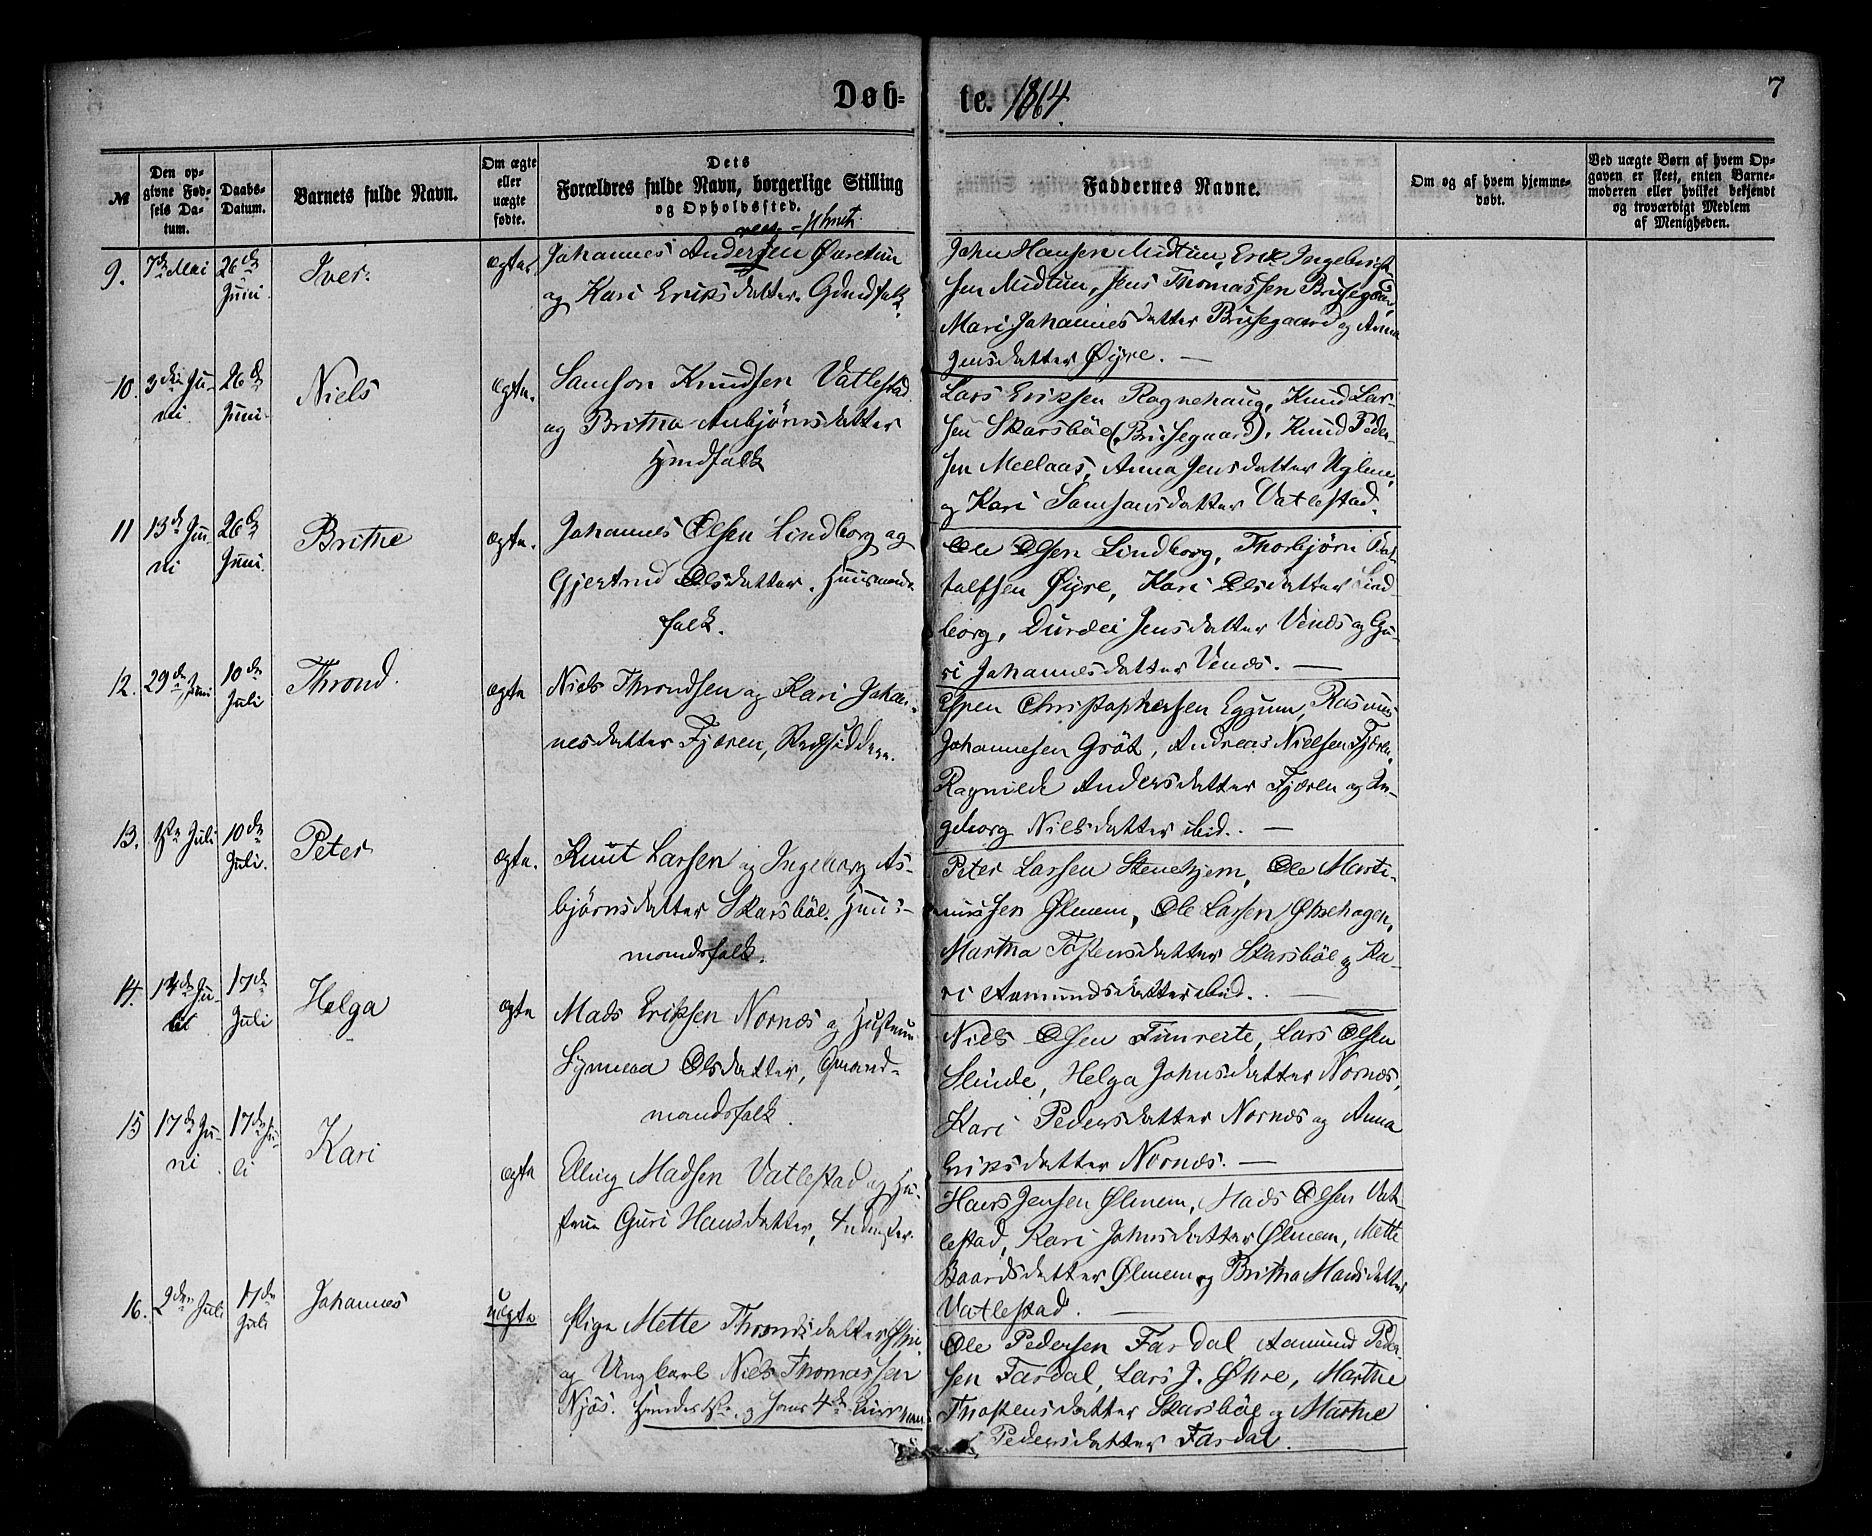 Døb-
te. 1864.
7
№
Den op-
givne Fød-
sels Da-
tum.
Daabs-
Datum.
Barnets fulde Navn.
Om ægte
eller
uægte
fødte.
Dets
Forældres fulde Navn, borgerlige Stilling
og Opholdssted.
Faddernes Navne.
Om og af hvem hjemme-
døbt.
Ved uægte Børn af hvem Op-
gaven er skeet, enten Barne-
moderen eller hvilket bekjendt
og troværdigt Medlem
af Menigheden.
9. 7de Mai
26de
Juni
Iver.
ægte.
Johannes Andersen Øvretun
og Kari Eriksdatter. Gdmdfolk.
John Hansen Midtun, Erik Ingebrigt-
sen Midtun, Jens Thomassen Brusegaard,
Mari Johannesdatter Brusegaard og Anna
Jensdatter Øyre. —
10. 3die Ju-
ni.
26de
Juni.
Niels
ægte.
Samson Knudsen Vatlestad
og Britha Anbjörnsdatter
Hmdfolk
Lars Eriksen Ragnehaug, Knud Lar-
sen Skarsböe (Brusegaard), Knud Peder-
sen Meelaas, Anna Jensdatter Uglum,
og Kari Samsonsdatter Vatlestad.
11 13de Ju-
ni
26de
Juni.
Brithe
ægte.
Johannes Olsen Lindborg og
Gjertrud Olsdatter. Huusmands
folk.
Ole Olsen Lindborg, Thorbjörn
talfsen Øyre, Kari Olsdatter Lind
borg, Durdei Jensdatter Venæs og Gu-
ri Johannesdatter Venæs. —
12. 29de Juni
10de
Juli
Thrond.
ægte
Niels Throndsen og Kari Johan-
nesdatter Fjæren,
Espen Christophersen Eggum, Rasmus
Johannesen Gröt, Andreas Nielsen Fjæren,
Ragnilde Andersdatter Fjæren og In-
geborg Nielsdatter ibid. —
13. 1ste Juli
10de
Juli.
Peter
ægte.
Knut Larsen og Ingeborg As-
björnsdatter Skarsböe. Huus-
mandsfolk.
Peter Larsen Stenehjem, Ole Marti-
nussen Ølmem, Ole Larsen Øksehagen,
Martha Tostensdatter Skarsböe og Ka-
ri Aamundsdatter ibid. —
14. 14de Ju-
li
17de
Juli
Helga
ægte
Mads Eriksen Nornæs og Hustru
Synneva Olsdatter, Gaard-
mandsfolk.
Niels Olsen Fimreite, Lars Olsen
Slinde, Helga Johnsdatter Nornæs,
Kari Pedersdatter Nornæs og Anna
Eriksdatter Nornæs. —
15 17de Ju-
ni.
17de Ju-
li
Kari
ægte
Elling Madsen Vatlestad og Hu-
stru Guri Hansdatter, Inderster.
Hans Jensen Ølmem, Mads Olsen Vat-
lestad, Kari Johnsdatter Ølmem, Mette
Baardsdatter Ølmem og Britha Madsdatter
Vatlestad. —
16. 2den Juli
17de
Juli
Johannes
uægte
Pige Mette Throndsdatter
og Ungkarl Niels Thomassen
Njøs. Hendes 1ste og hans 4de
Ole Pedersen Fardal, Aamund Peder
sen Fardal, Lars J. Øhre, Marthe
Thostensdatter Skarsböe og Marthe
Pedersdatter Fardal.